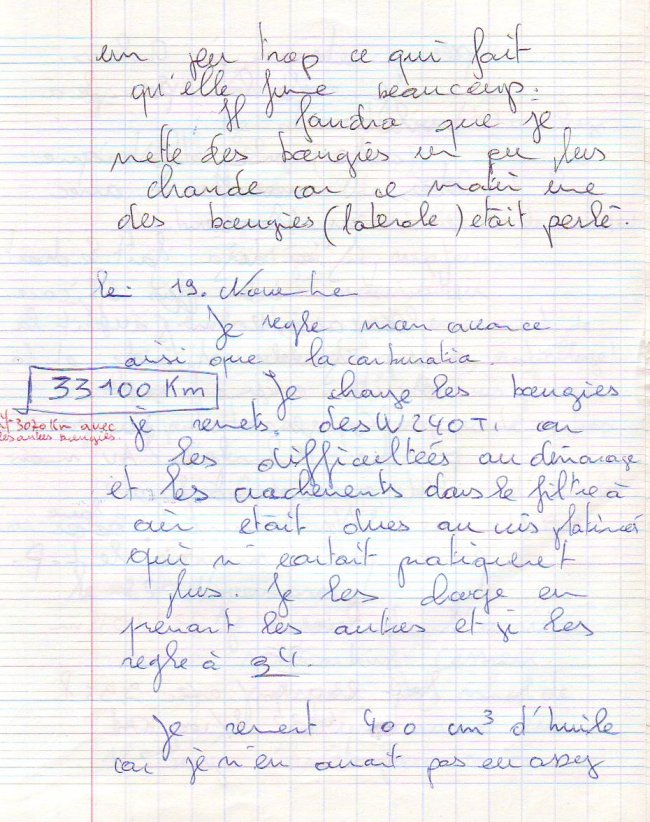 un peu trop ce qui fait
qu'elle fume beaucoup.
Il faudra que je
mette des bougies un peu plus
chaude car ce matin une
des bougies (laterale) etait perlé.
le 19. Novembre
Je regle mon avance
ainsi que la carburation.
33100 Km
Je change les bougies
3070 Km avec
les autres bougies
je remets. des W 240 T1 car
les difficultées au démarage
et les crachements dans le filtre à
air etait dues au vis platinés
qui n' ecartait pratiquement
plus. Je les change en
prenant les autres et je les
regle à 34.
Je remert 400 cm³ d'huile
car je n'en avait pas eu assez